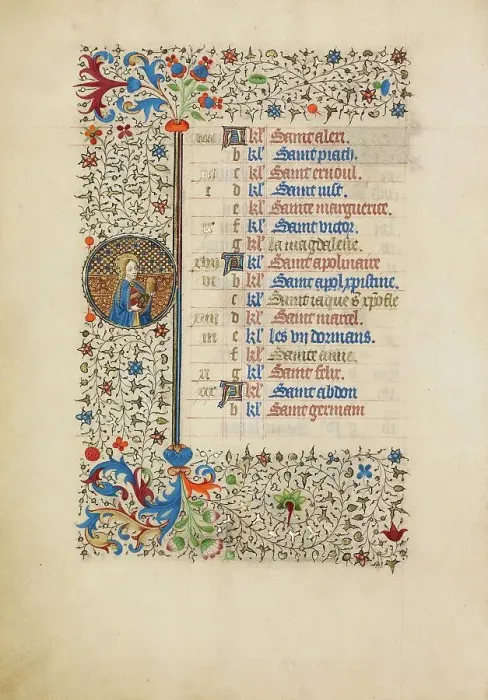 A kl' Saint alexi.
b kl' Saint piath.
c kl' Saint ernoul.
d kl' Saint iust.
e kl' Sainte marguerite.
f kl' Saint victor.
g kl' La magdalene.
A kl' Saint apolinaire
b kl' Saint apol xpistine.
c kl' Saint iaque s xpofle
d kl' Saint marcel.
e kl' les vii dormans.
f kl' Sainte anne.
g kl' Saint felix.
A kl' Saint abdon
b kl' Saint germain